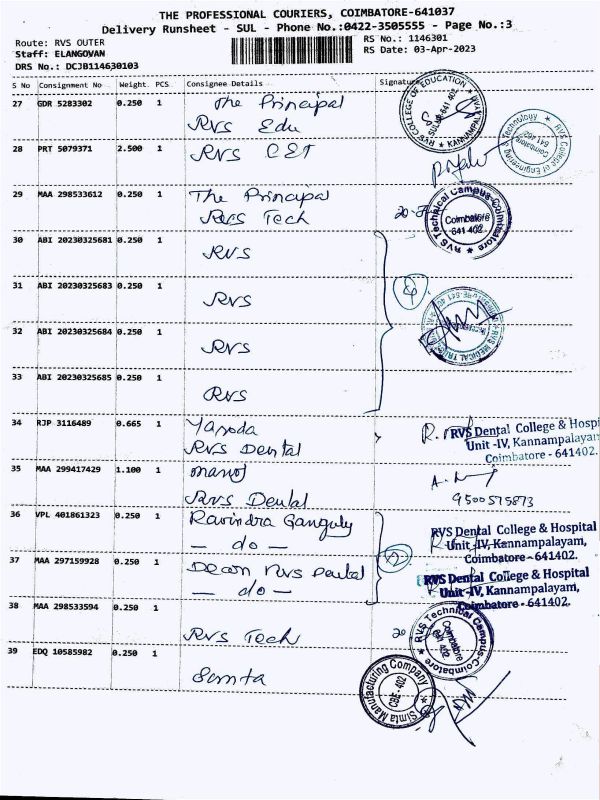 THE PROFESSIONAL COURIERS, COIMBATORE-641037
Delivery Runsheet - SUL - Phone No.:0422-3505555 - Page No.:3
Route: RVS OUTER
RS No.: 1146301
Staff: ELANGOVAN
RS Date: 03-Apr-2023
DRS No.: DCJB114630103
S No Consignment No Weight PCS Consignee Details Signature
27 GDR 5283302 0.250 1 The Principal
RVS Edu
RVS COLLEGE OF EDUCATION ★ KANNAMPALAYAM ★ SULUR-641 402
28 PRT 5079371 2.500 1 RVS CET
RVS College of Engineering & Technology ★ Coimbatore 641 402
29 MAA 298533612 0.250 1 The Principal
RVS Tech
RVS Technical Campus-Coimbatore ★ Coimbatore 641 402
30 ABI 20230325681 0.250 1
RVS
31 ABI 20230325683 0.250 1
RVS
4
32 ABI 20230325684 0.250 1
RVS
RVS MEDICAL
33 ABI 20230325685 0.250 1
RVS
34 RJP 3116489 0.665 1 Yasoda
RVS Dental
RVS Dental College & Hospi
Unit -IV, Kannampalayam
Coimbatore - 641402.
35 MAA 299417429 1.100 1 manoj
RVS Dental
9500575873
36 VPL 401861323 0.250 1 Ravindra Ganguly
- do -
RVS Dental College & Hospital
Unit -IV, Kannampalayam,
Coimbatore - 641402.
2
37 MAA 297159928 0.250 1 Decan RVS Dental
- do -
RVS Dental College & Hospital
Unit -IV, Kannampalayam,
Coimbatore - 641402.
38 MAA 298533594 0.250 1
RVS Tech
20
RVS Technical Campus-Coimbatore ★ Coimbatore 641 402
39 EDQ 10585982 0.250 1
Simta
Simta Manufacturing Company ★ CBE - 402